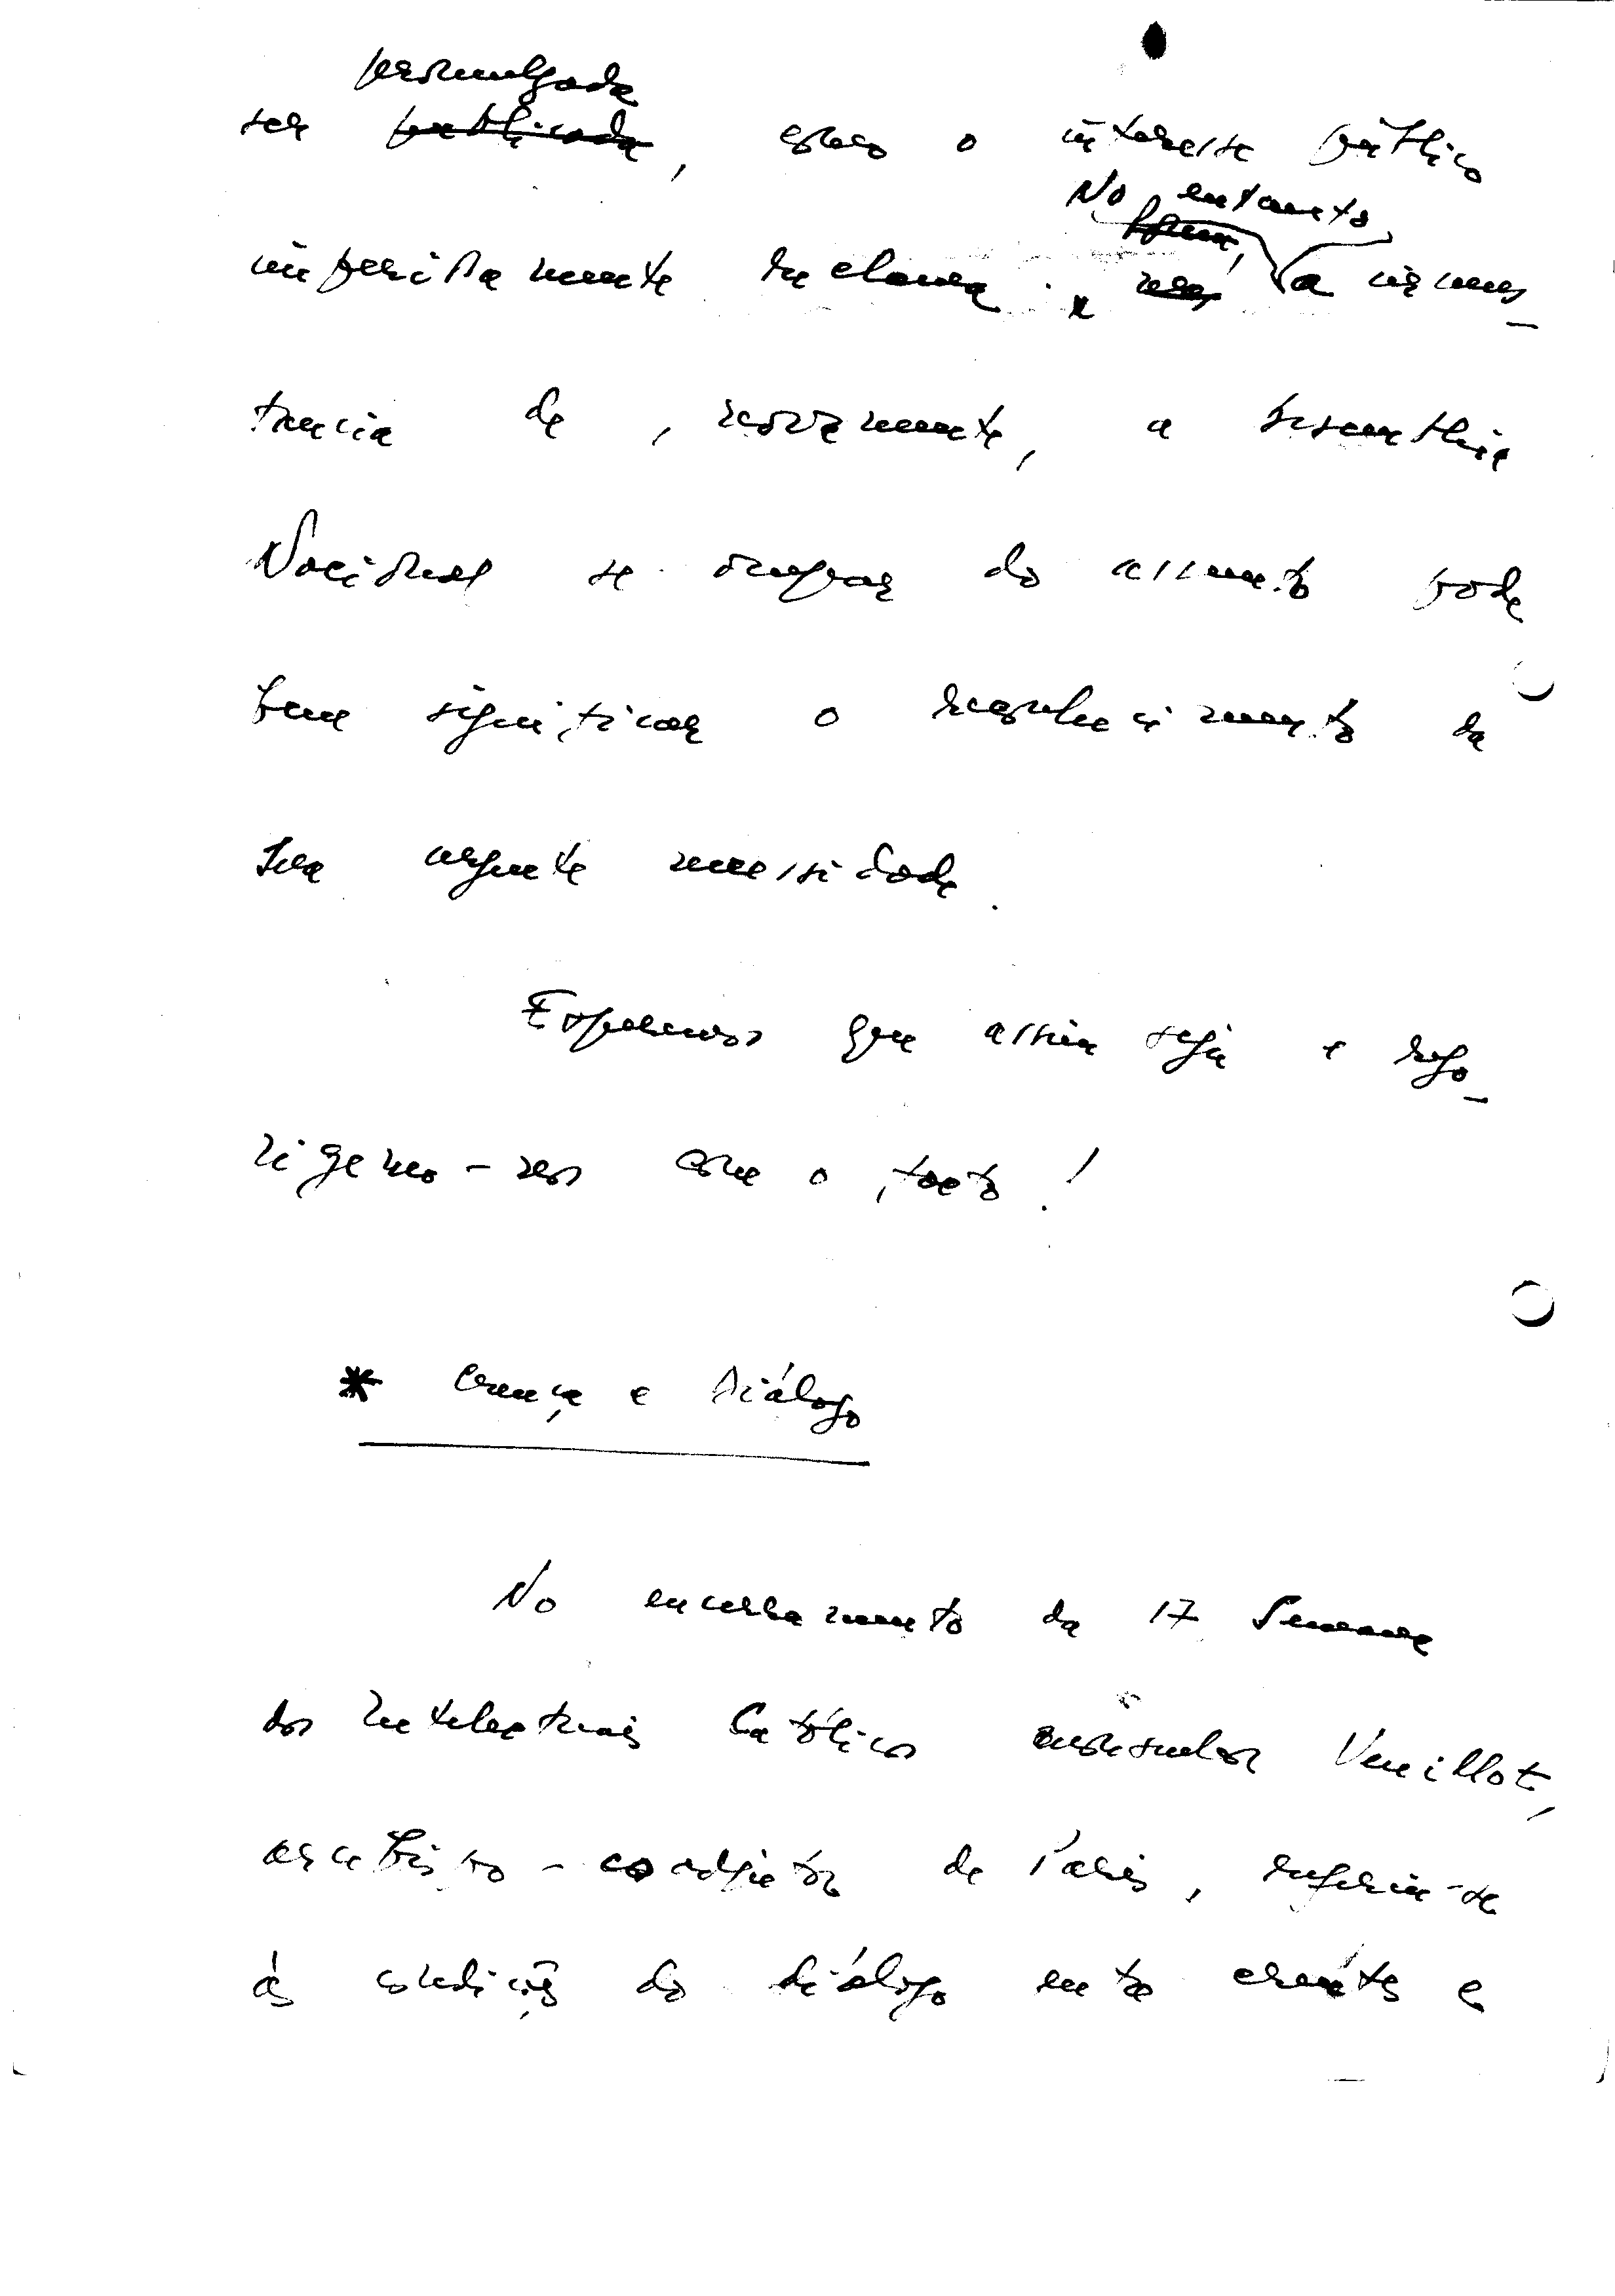 promulgada
ser publicada, como o interesse público
No entanto
imperiosamente reclama. mas a circuns-
tancia de, novamente, a Assembleia
Nacional se ocupar do assunto pode
bem significar o reconhecimento da
sua urgente necessidade.
Esperemos que assim seja e rego-
zigemo-nos com o facto!
* Crença e Diálogo
No encerramento da 17 Semana
dos Intelectuais Católicos monsenhor Veuillot,
arcebispo-coadjutor de Paris, referiu-se
ás condições do diálogo entre crentes e